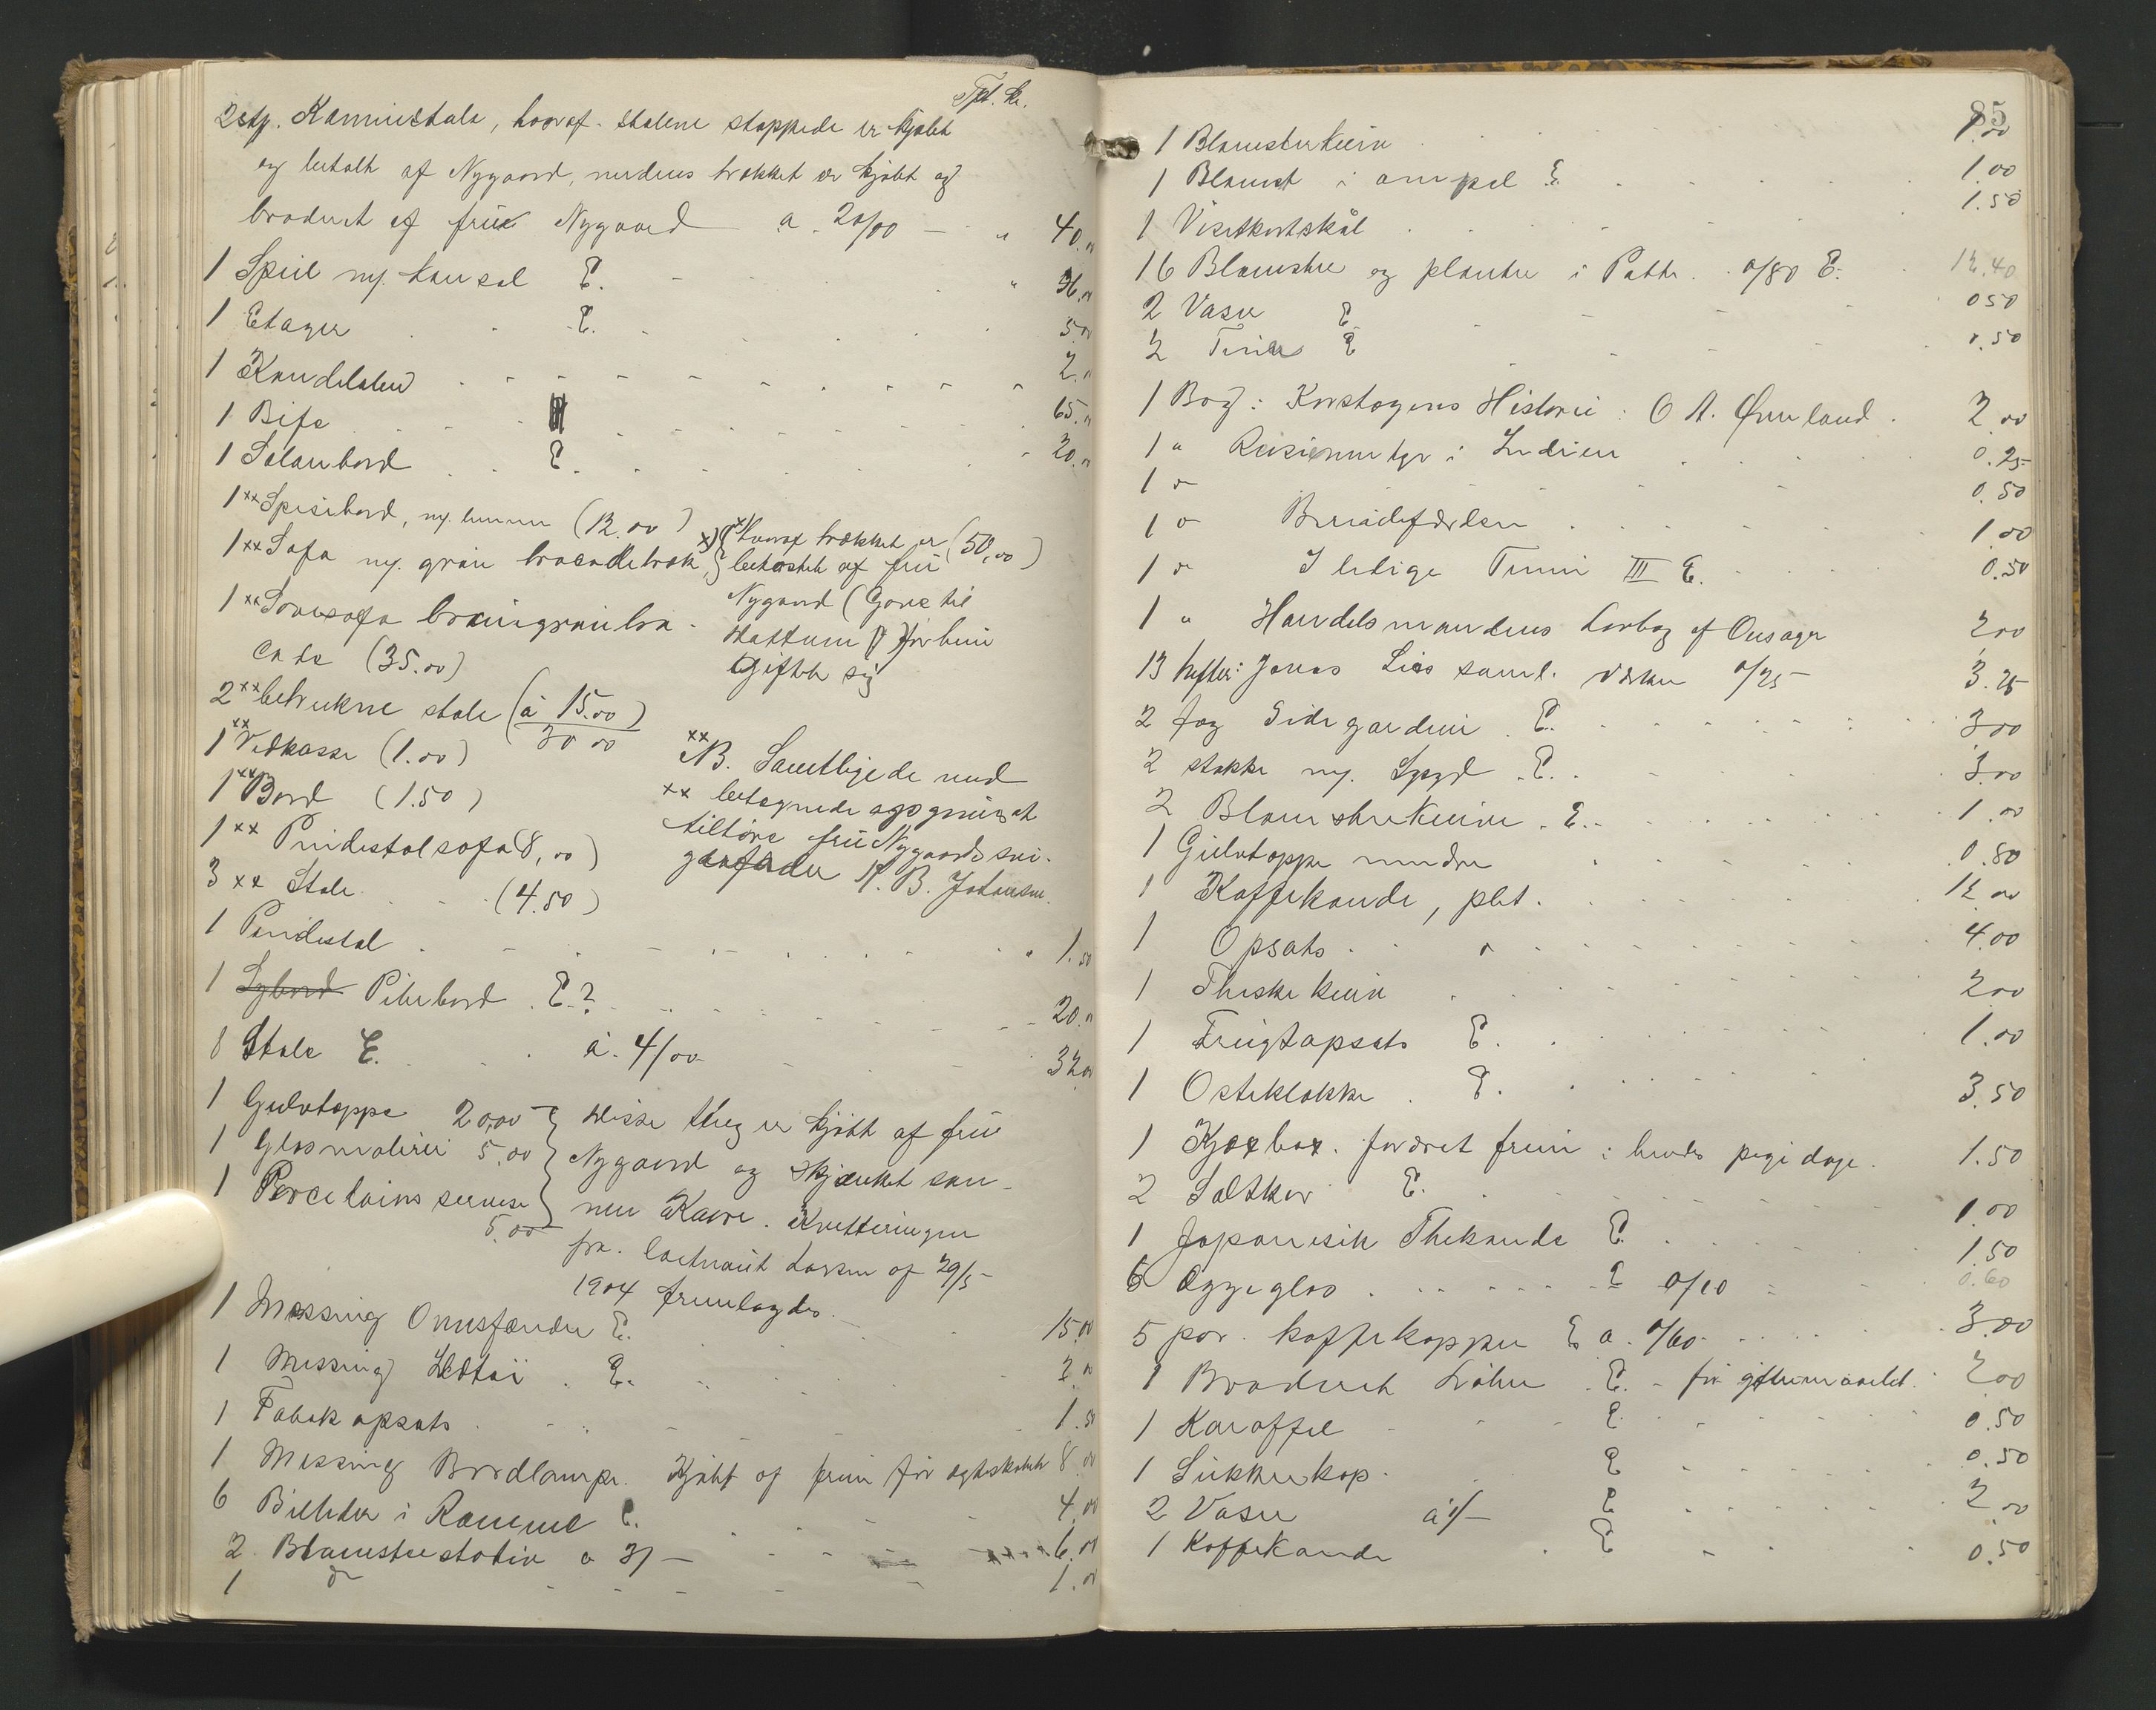 Tpt. kr.
2 stp. Kaminstole, hvoraf stolene stoppede er kjøbt
og betalt af Nygaard, medens trækket er kjøbt og
broderet af frue Nygaard a. 20/00 — " 40.00
1 Speil m/ konsol E. " 36.00
1 Etager E. 5.00
1 Kandelaber 2.00
1 Bife 65.00
1 Salonbord E. 20.00
1 xx Spisebord, m/ lemmer (12.00)
1 xx Sofa m/ grøn brocadetræk, x) { x) hvoraf trækket er (50,00)
bekostet af frue
Nygaard (Gave til
Hattum ) før hun
giftet sig
1 xx Sovesofa brungrøn bro-
cade (35.00)
2 xx betrukne stole (à 15.00)
30 00
1 xx Vedkasse (1.00)
1 xx Bord (1.50)
1 xx Pidestalsofa (8,00)
3 xx Stole (4.50)
xx
NB. Samtlige de med
xx betegnede opgives at
tilhøre frue Nygaards svi-
gerfader N. B. Johansen.
1 Pidestal " 1.50
1 Sybord Pilebord E.? 20.00
8 Stole E. à. 4/00 32.00
1 Gulvtæppe 20,00
1 Glasmaleri 5.00
1 Porcelains servise
5.00
} disse ting er kjøbt af frue
Nygaard og skjænket søn-
nen Kaare. Kvitteringen
fra Larsen af 29/5-
1904 fremlagdes.
1 Messing Ovnsforsætter E. 15.00
1 Messing Ildtøi E. 2.00
1 Tobakopsats 1.50
1 Messing Bordlampe. Kjøbt af fruen før egteskabet 8.00
6 Billeder i Ramme E. 4.00
2 Blomsterstativ a 3/— 6.00
1 do 1.00
85
1 Blomsterkurv 1.00
1 Blomst i ampel E. 1.00
1 Visitkortskål 1.50
16 Blomster og planter i Potter. 0/80 E. 12.40
2 Vaser E 0 50
2 E 0.50
1 Bog: Korstogenes Historie: O A. Øverland. 2 00
1 " Reiseeventyr i Indien 0.25
1 do 0.50
1 do 1.00
1 do I ledige Timer III E. 0.50
1 " Handelsmandens Lovbog af Onsager 2 00
13 hefter: Jonas Lies saml. værker 0/25 3.25
2 fag Sidegardiner E. 3 00
2 stokke m/ Spyd E. 3.00
2 Blomsterkurve E. 1.00
1 Gulvtæppe mindre 0.80
1 Kaffekande, plet. 12 00
1 Opsats do 4.00
1 Theskekurv 2 00
1 Frugtopsats E. 1.00
1 Osteklokke E. 3.50
1 foræret fruen i hendes pigedage. 1.50
2 Saltkar E. 1.00
1 Japanesisk Thekande E. 1.50
6 Æggeglas E 0/10 0.60
5 par kaffekopper E a. 0/60 3.00
1 Broderet Løber E. - før giftermaalet. 2.00
1 Karaffel E 0.50
1 Sukkerkop E 0.50
2 Vaser à 1/— E 2.00
1 Kaffekande E 0.50